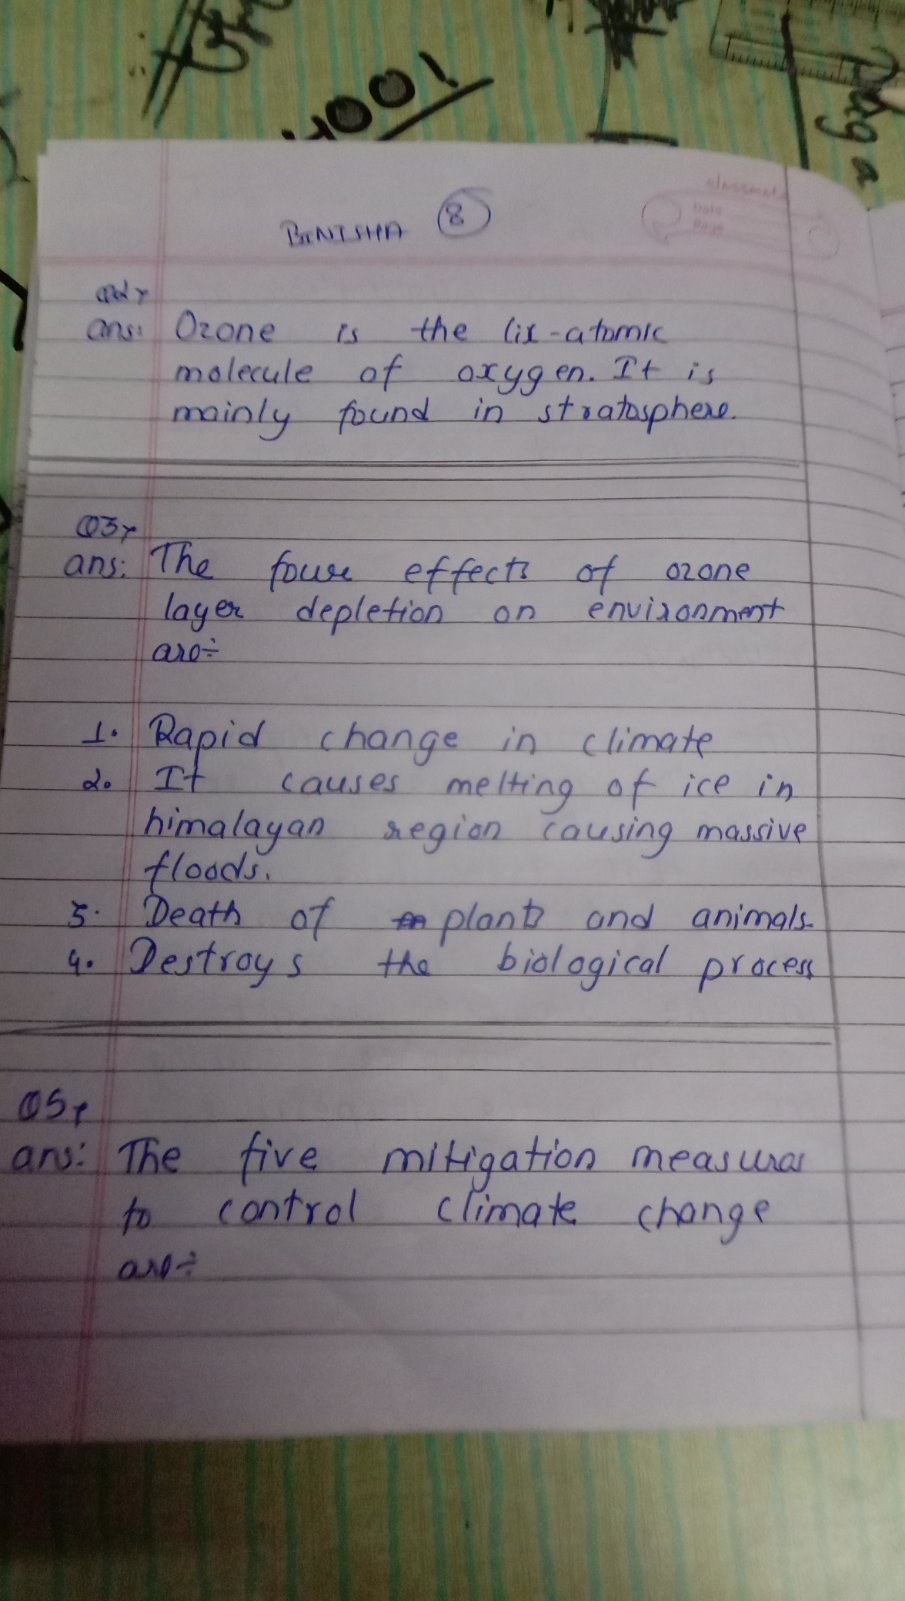 1001
Page
classmate
Date
Page
BINISHA 8
Q2r
ans: Ozone is the (ix-atomic
molecule of oxygen. It is
mainly found in stratosphere.
Q3r
ans: The foure effects of ozone
layer depletion on environment
are÷
1. Rapid change in climate
2. It causes melting of ice in
himalayan region causing massive
floods.
3. Death of plants and animals.
4. Destroys the biological process
Q5r
ans: The five mitigation measures
to control climate change
are÷